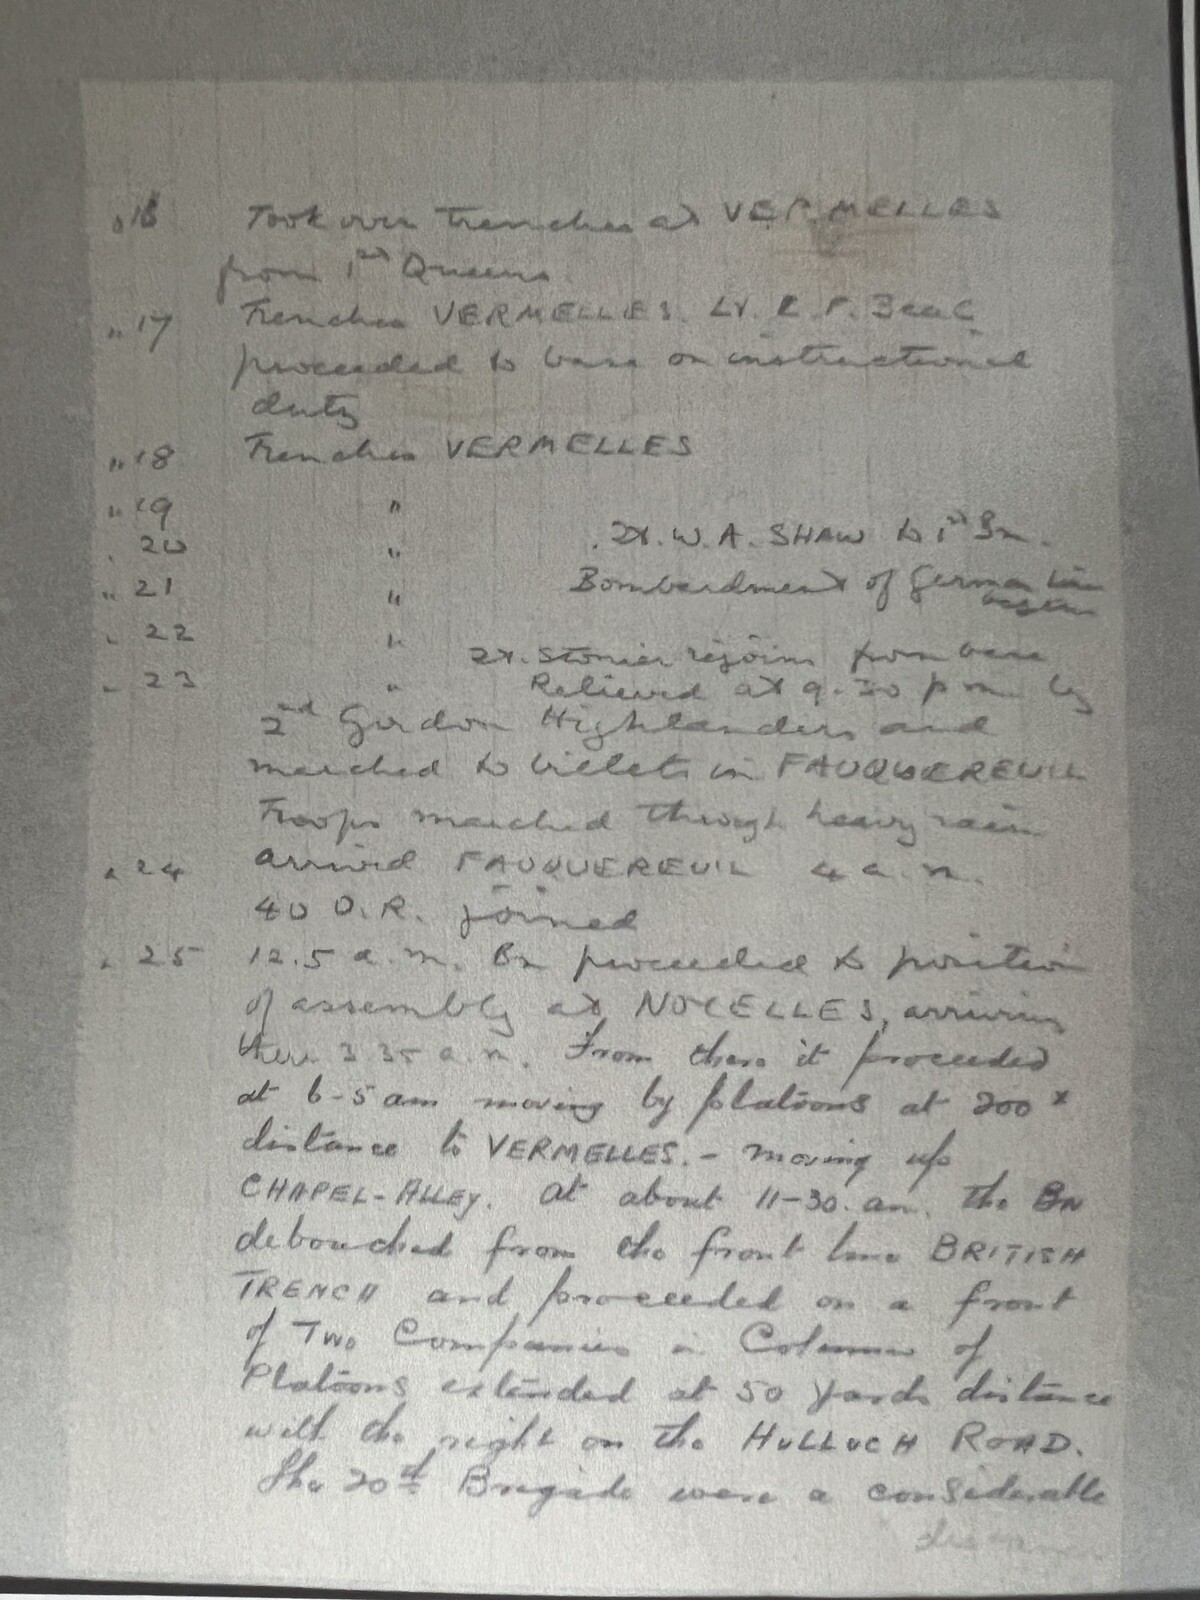 " 16 Took over trenches at VERMELLES
from 1st Queens
" 17 Trenches VERMELLES. Lt. R. P. Beal
proceeded to base on instructional
duty
" 18 Trenches VERMELLES
" 19 "
" 20 " Lt. W. A. SHAW to 1st Bn.
" 21 " Bombardment of German line
began
" 22 " Lt. Stonier rejoins from base
" 23 " Relieved at 9.30 p m by
2nd Gordon Highlanders and
marched to billets in FAUQUEREUIL
Troops marched through heavy rain
" 24 arrived FAUQUEREUIL 4 a.m.
40 O.R. joined
" 25 12.5 a.m. Bn proceeded to position
of assembly at NOYELLES, arriving
there 3.35 a.m. From there it proceeded
at 6-5 am moving by platoons at 200 x
distance to VERMELLES. - moving up
CHAPEL-ALLEY. At about 11-30. am. the BN
debouched from the front line BRITISH
TRENCH and proceeded on a front
of Two Companies in Column of
Platoons extended at 50 yards distance
with the right on the HULLUCH ROAD.
The 20th Brigade were a considerable
distance